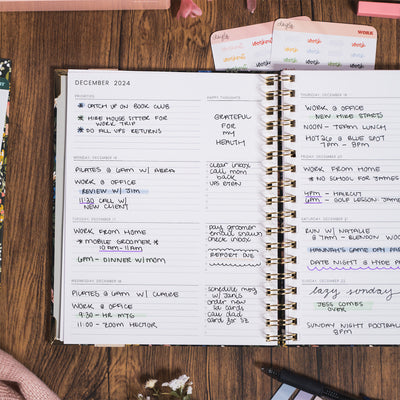 DECEMBER 2024
PRIORITIES
* CATCH UP ON BOOK CLUB
* HIRE HOUSE SITTER FOR
WORK TRIP
* DO ALL UPS RETURNS
HAPPY THOUGHTS
GRATEFUL
FOR
MY
HEALTH
MONDAY, DECEMBER 16
PILATES @ 6AM W/ ABRA
WORK @ OFFICE
REVIEW W/ JIM
11:30 CALL W/
NEW CLIENT
clear inbox
call mom
back
UPS ETSN
TUESDAY, DECEMBER 17
WORK FROM HOME
* MOBILE GROOMER *
10AM-11AM
6PM - DINNER W/MOM
pay groomer
email shawn
check inbox
REPORT DUE
WEDNESDAY, DECEMBER 18
PILATES @ 6AM W/ CLAIRE
WORK @ OFFICE
9:30 - HR MTG
11:00 - ZOOM HECTOR
schedule mtg
w/ Janis
order new
id cards
call dad
card for SZ
THURSDAY, DECEMBER 19
WORK @ OFFICE
NEW HIRE STARTS
NOON - TEAM LUNCH
HOT26 @ BLUE SPOT
7PM - 9PM
FRIDAY, DECEMBER 20
WORK FROM HOME
* NO SCHOOL FOR JAMES
4PM - HAIRCUT
6PM - GOLF LESSON JAMES
SATURDAY, DECEMBER 21
RUN W/ NATALIE
@ 7AM - BLENDON WOOD
HANNAH'S GAME DAY PA
DATE NIGHT @ HYDE PA
SUNDAY, DECEMBER 22
lazy sunday
JESS COMBS
OVER
SUNDAY NIGHT FOOTBALL
8PM
WORK